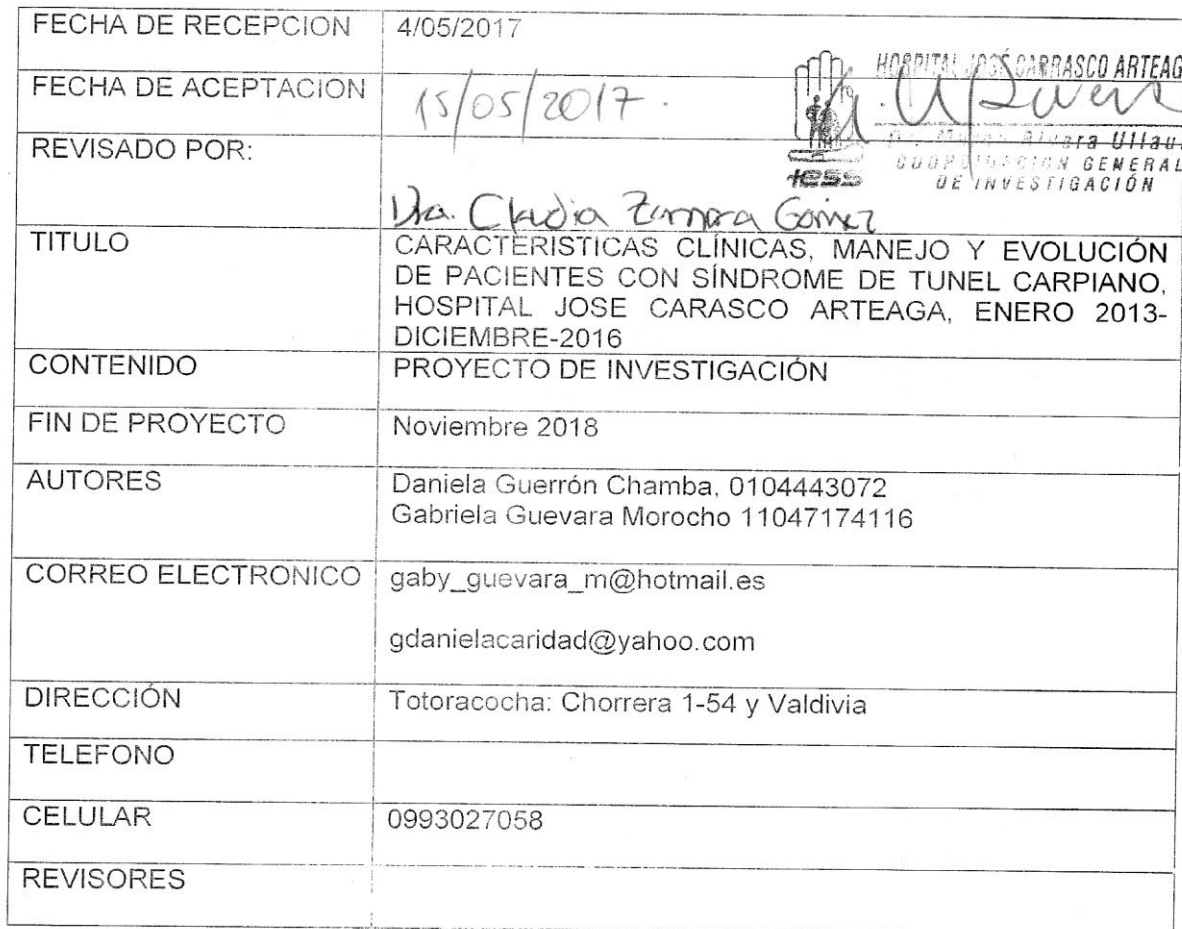 FECHA DE RECEPCION 4/05/2017
HOSPITAL JOSÉ CARRASCO ARTEAG
FECHA DE ACEPTACION 15/05/2017.
Rivera Ullau
GENERAL
DE INVESTIGACIÓN
IESS
REVISADO POR:
Dra. Claudia Zamora Gómez
TITULO CARACTERISTICAS CLÍNICAS, MANEJO Y EVOLUCIÓN
DE PACIENTES CON SÍNDROME DE TUNEL CARPIANO,
HOSPITAL JOSE CARASCO ARTEAGA, ENERO 2013-
DICIEMBRE-2016
CONTENIDO PROYECTO DE INVESTIGACIÓN
FIN DE PROYECTO Noviembre 2018
AUTORES Daniela Guerrón Chamba, 0104443072
Gabriela Guevara Morocho 11047174116
CORREO ELECTRONICO gaby_guevara_m@hotmail.es
gdanielacaridad@yahoo.com
DIRECCIÓN Totoracocha: Chorrera 1-54 y Valdivia
TELEFONO
CELULAR 0993027058
REVISORES